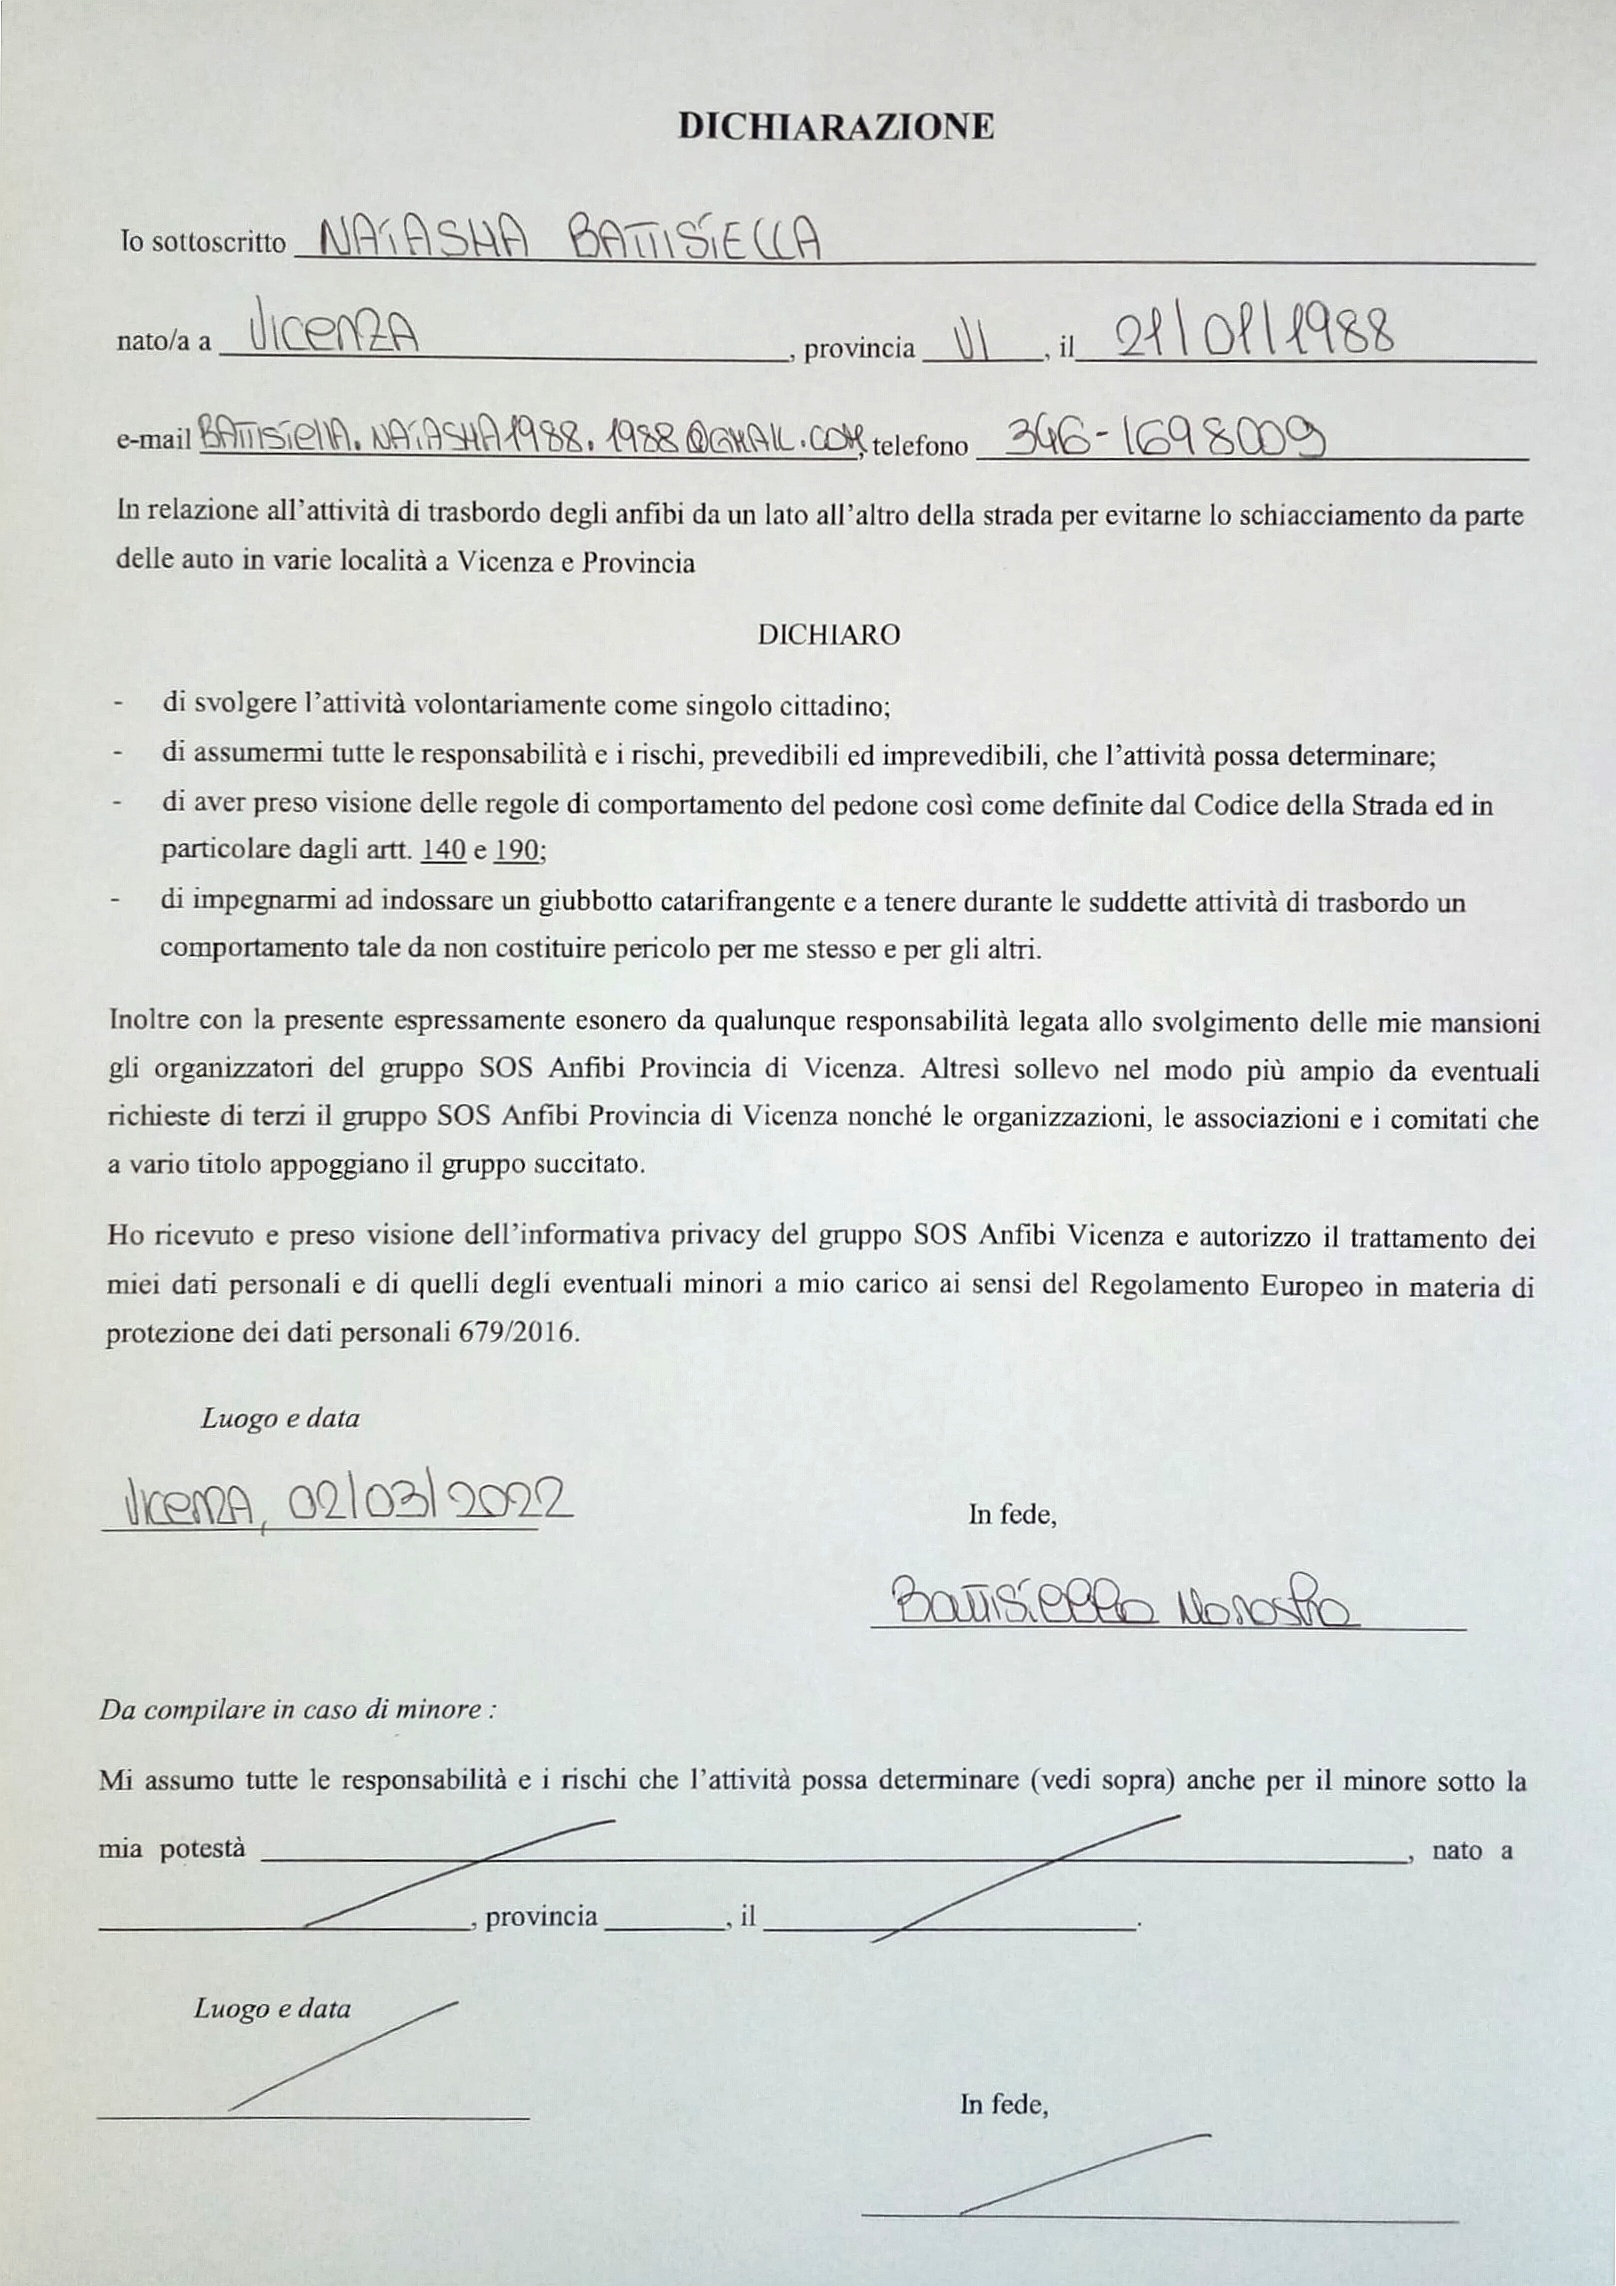 DICHIARAZIONE
Io sottoscritto NATASHA BATTISTELLA
nato/a a VICENZA, provincia VI, il 21/01/1988
e-mail BATTISTELLA.NATASHA1988.1988@GMAIL.COM, telefono 346-1698009
In relazione all'attività di trasbordo degli anfibi da un lato all'altro della strada per evitarne lo schiacciamento da parte
delle auto in varie località a Vicenza e Provincia
DICHIARO
- di svolgere l'attività volontariamente come singolo cittadino;
- di assumermi tutte le responsabilità e i rischi, prevedibili ed imprevedibili, che l'attività possa determinare;
- di aver preso visione delle regole di comportamento del pedone così come definite dal Codice della Strada ed in
particolare dagli artt. 140 e 190;
- di impegnarmi ad indossare un giubbotto catarifrangente e a tenere durante le suddette attività di trasbordo un
comportamento tale da non costituire pericolo per me stesso e per gli altri.
Inoltre con la presente espressamente esonero da qualunque responsabilità legata allo svolgimento delle mie mansioni
gli organizzatori del gruppo SOS Anfibi Provincia di Vicenza. Altresì sollevo nel modo più ampio da eventuali
richieste di terzi il gruppo SOS Anfibi Provincia di Vicenza nonché le organizzazioni, le associazioni e i comitati che
a vario titolo appoggiano il gruppo succitato.
Ho ricevuto e preso visione dell'informativa privacy del gruppo SOS Anfibi Vicenza e autorizzo il trattamento dei
miei dati personali e di quelli degli eventuali minori a mio carico ai sensi del Regolamento Europeo in materia di
protezione dei dati personali 679/2016.
Luogo e data
VICENZA, 02/03/2022
In fede,
Battistella Natasha
Da compilare in caso di minore :
Mi assumo tutte le responsabilità e i rischi che l'attività possa determinare (vedi sopra) anche per il minore sotto la
mia potestà , nato a
, provincia , il .
Luogo e data
In fede,